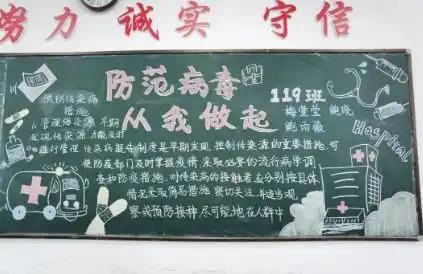 努力 诚实 守信
防范病毒
从我做起
119班
Hospital
预防传染病
措施
1.管理传染源 早期
发现传染源 力能及时
进行管理 传染病报告制度是早期发现、控制传染源的重要措施,可
使防疫部门及时掌握疫情,采取必要的流行病学调
查和防疫措施。对传染病的接触者应分别按具体
情况采取
措施,密切关注,并适当观
察或预防接种,尽可能地在人群中